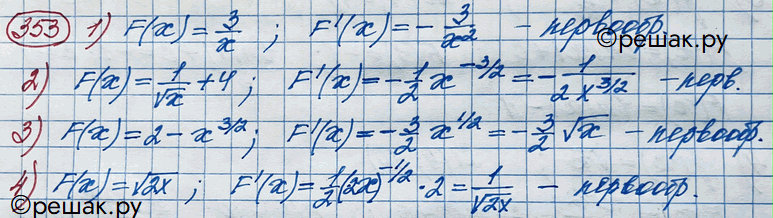 353 1) F(x) = 3/x ; F'(x) = - 3/x² - первообр.
©решак.ру
2) F(x) = 1/√x + 4 ; F'(x) = - 1/2 x^(-3/2) = - 1/(2x^(3/2)) - перв.
3) F(x) = 2 - x^(3/2) ; F'(x) = - 3/2 x^(1/2) = - 3/2 √x - первообр.
4) F(x) = √2x ; F'(x) = 1/2 (2x)^(-1/2) · 2 = 1/√2x - первообр.
©решак.ру